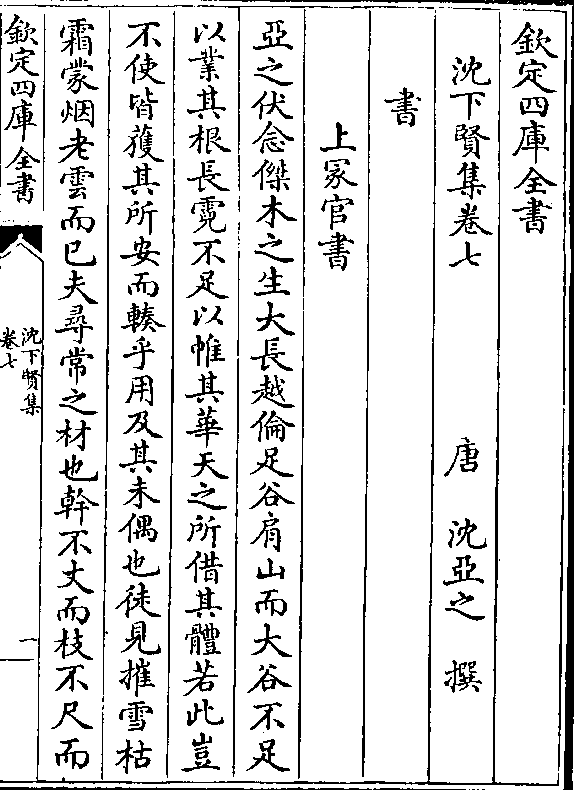 欽定四庫全書
沈下賢集卷七
唐 沈亞之 撰
書
上冢官書
亞之伏念傑木之生大長越倫足谷肩山而大谷不足
以業其根長霓不足以帷其華天之所借其體若此豈
不使皆獲其所安而轃乎用及其未偶也徒見摧雪枯
霜蒙烟老雲而已夫尋常之材也幹不丈而枝不尺而
欽定四庫全書
沈下賢集
卷七
一